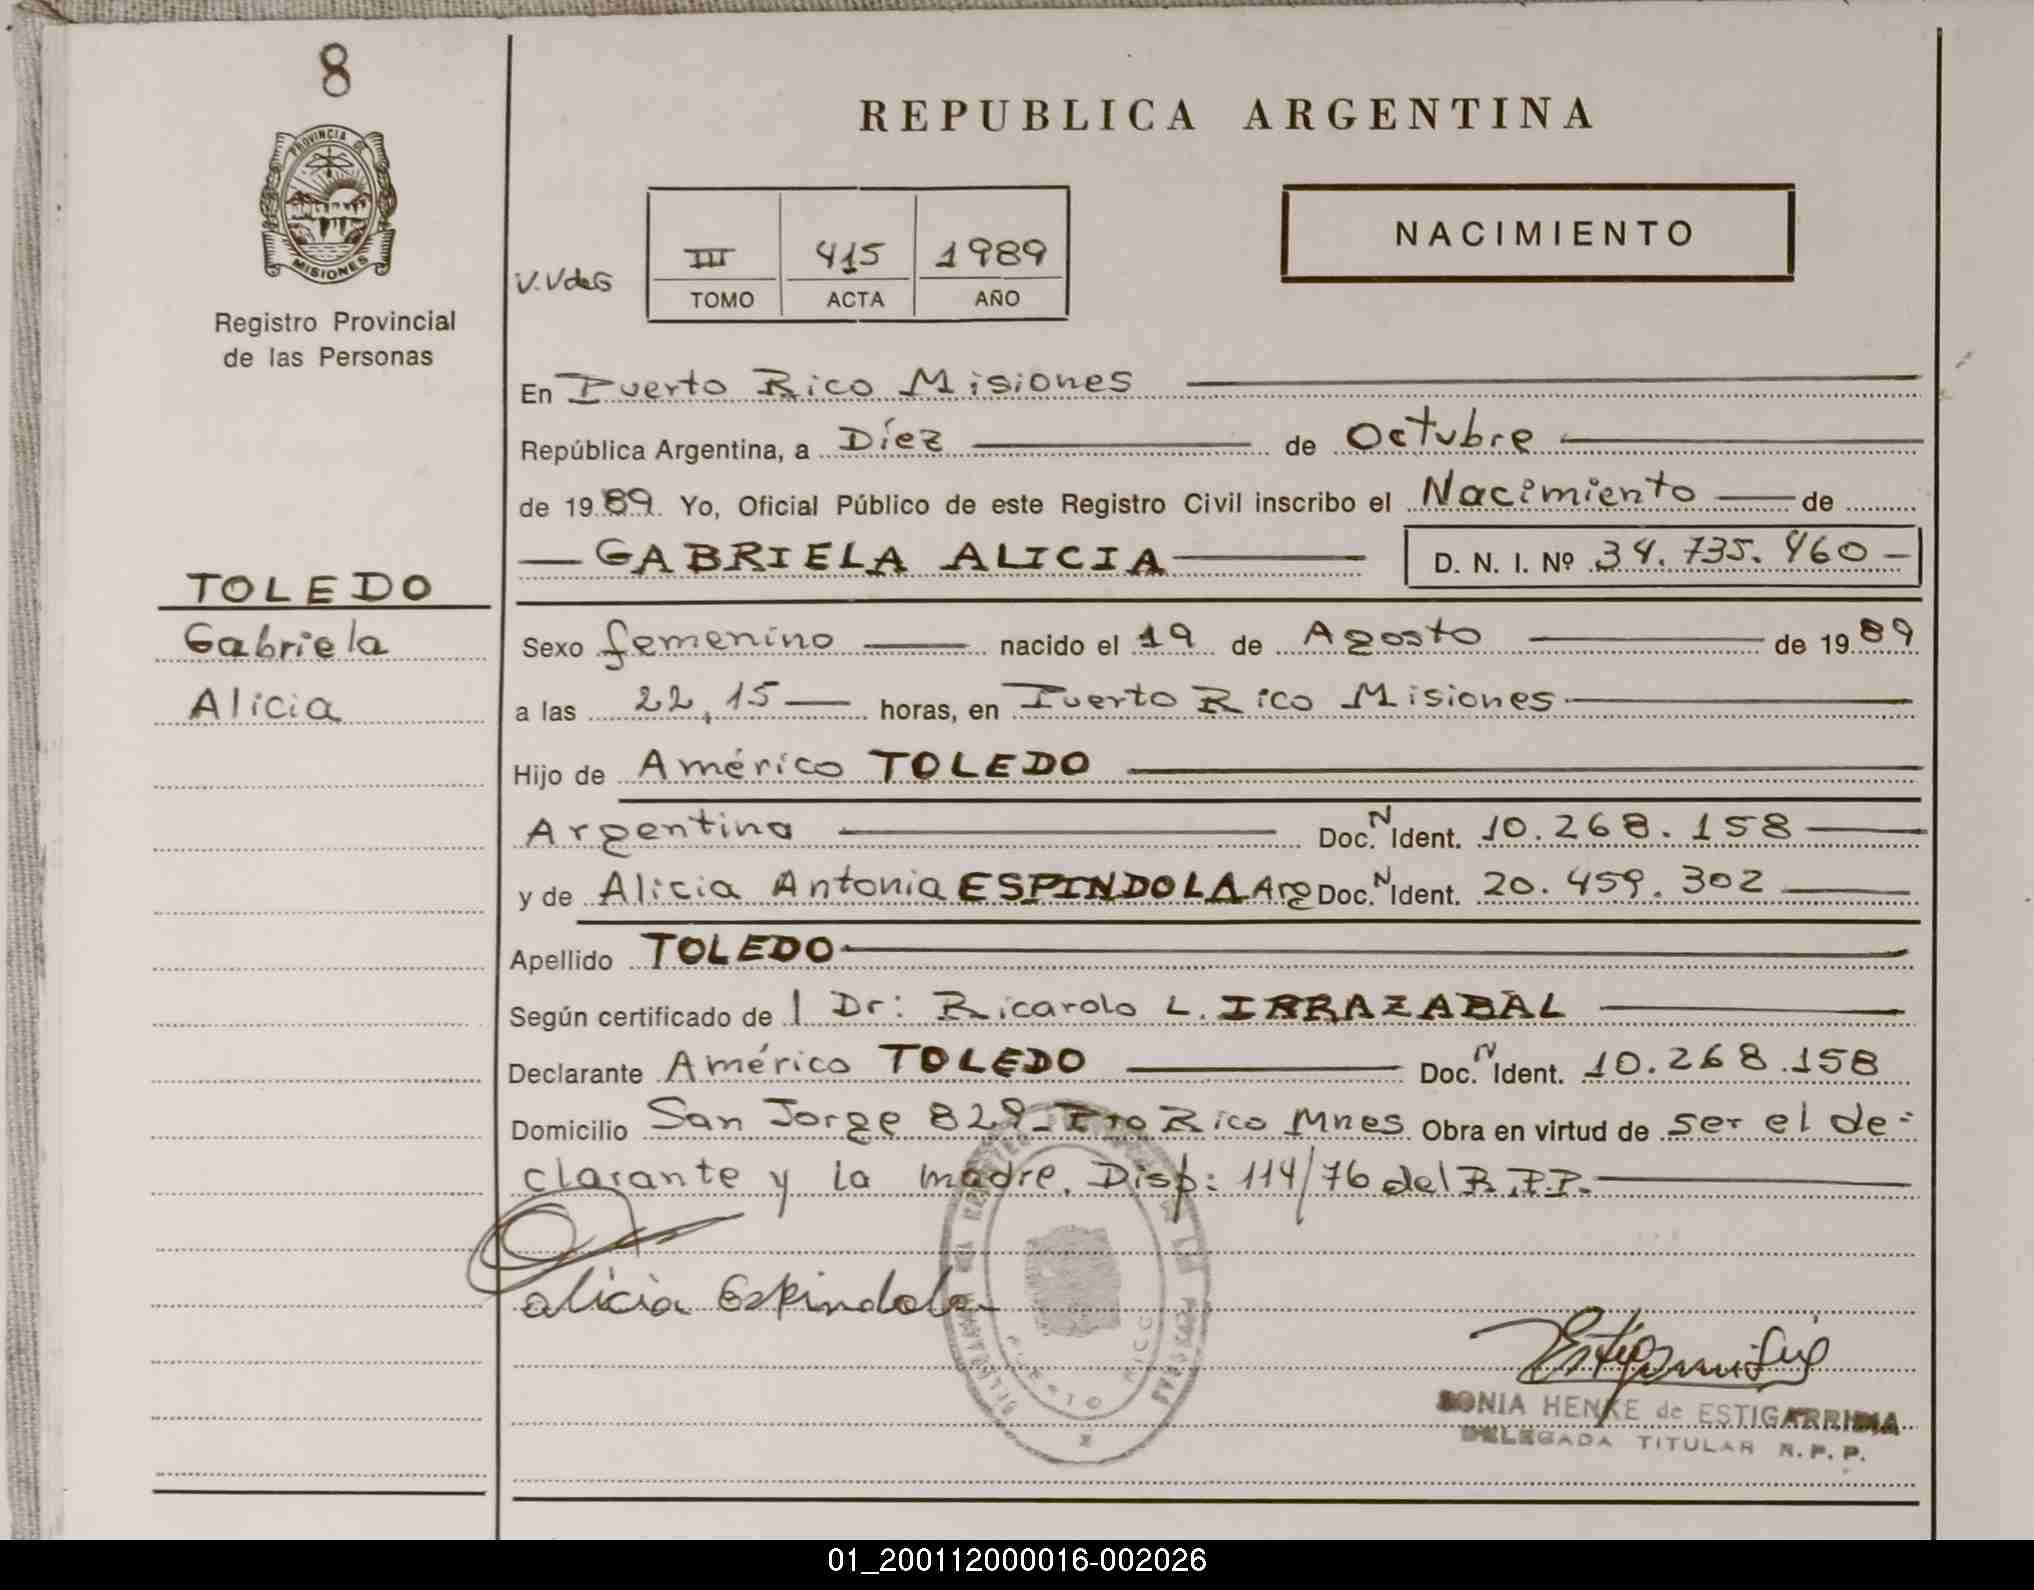 8
PROVINCIA DE
MISIONES
Registro Provincial
de las Personas
TOLEDO
Gabriela
Alicia
REPUBLICA ARGENTINA
NACIMIENTO
V.VdeG
III 415 1989
TOMO ACTA AÑO
En Puerto Rico Misiones
República Argentina, a Díez de Octubre
de 1989. Yo, Oficial Público de este Registro Civil inscribo el Nacimiento de
GABRIELA ALICIA D. N. I. Nº 34.735.460
Sexo femenino nacido el 19 de Agosto de 1989
a las 22,15 horas, en Puerto Rico Misiones
Hijo de Américo TOLEDO
Argentino Doc. N Ident. 10.268.158
y de Alicia Antonia ESPINDOLA Arg Doc. N Ident. 20.459.302
Apellido TOLEDO
Según certificado de l Dr: Ricardo L. IRRAZABAL
Declarante Américo TOLEDO Doc. N Ident. 10.268.158
Domicilio San Jorge 829 - Pto Rico Mnes Obra en virtud de ser el de-
clarante y la madre. Disp: 114/76 del R.P.P.
alicia Espindola
PUERTO RICO
SONIA HENKE de ESTIGARRIBIA
DELEGADA TITULAR R. P. P.
01_200112000016-002026